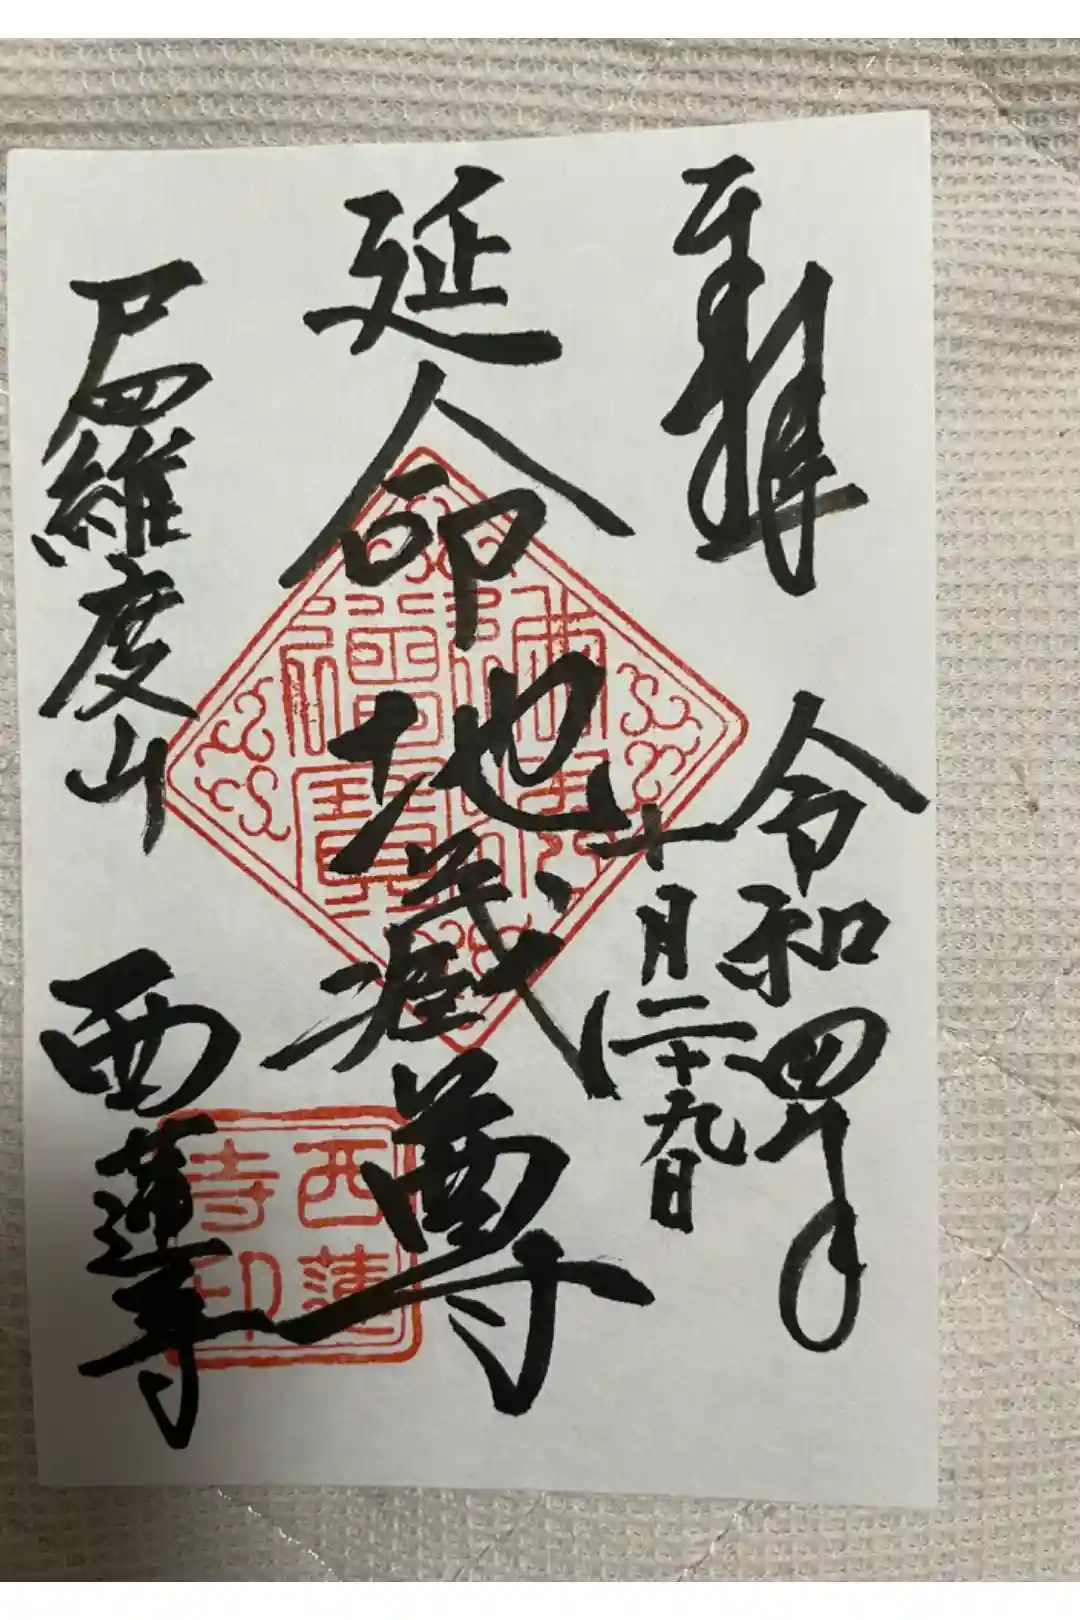 奉拝
令和四年
十月二十九日
延命地蔵尊
尸羅度山
西蓮寺
西蓮
寺印